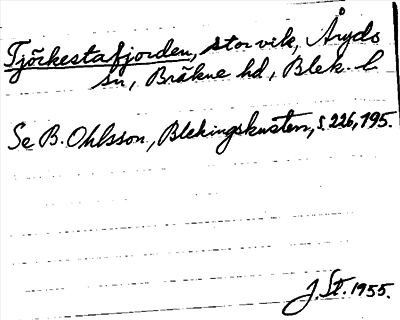 Tjörkestafjorden, stor vik, Åryds
sn, Bräkne hd, Blek. l.
Se B. Ohlsson, Blekingskusten, s. 226, 195.
J. St. 1955.